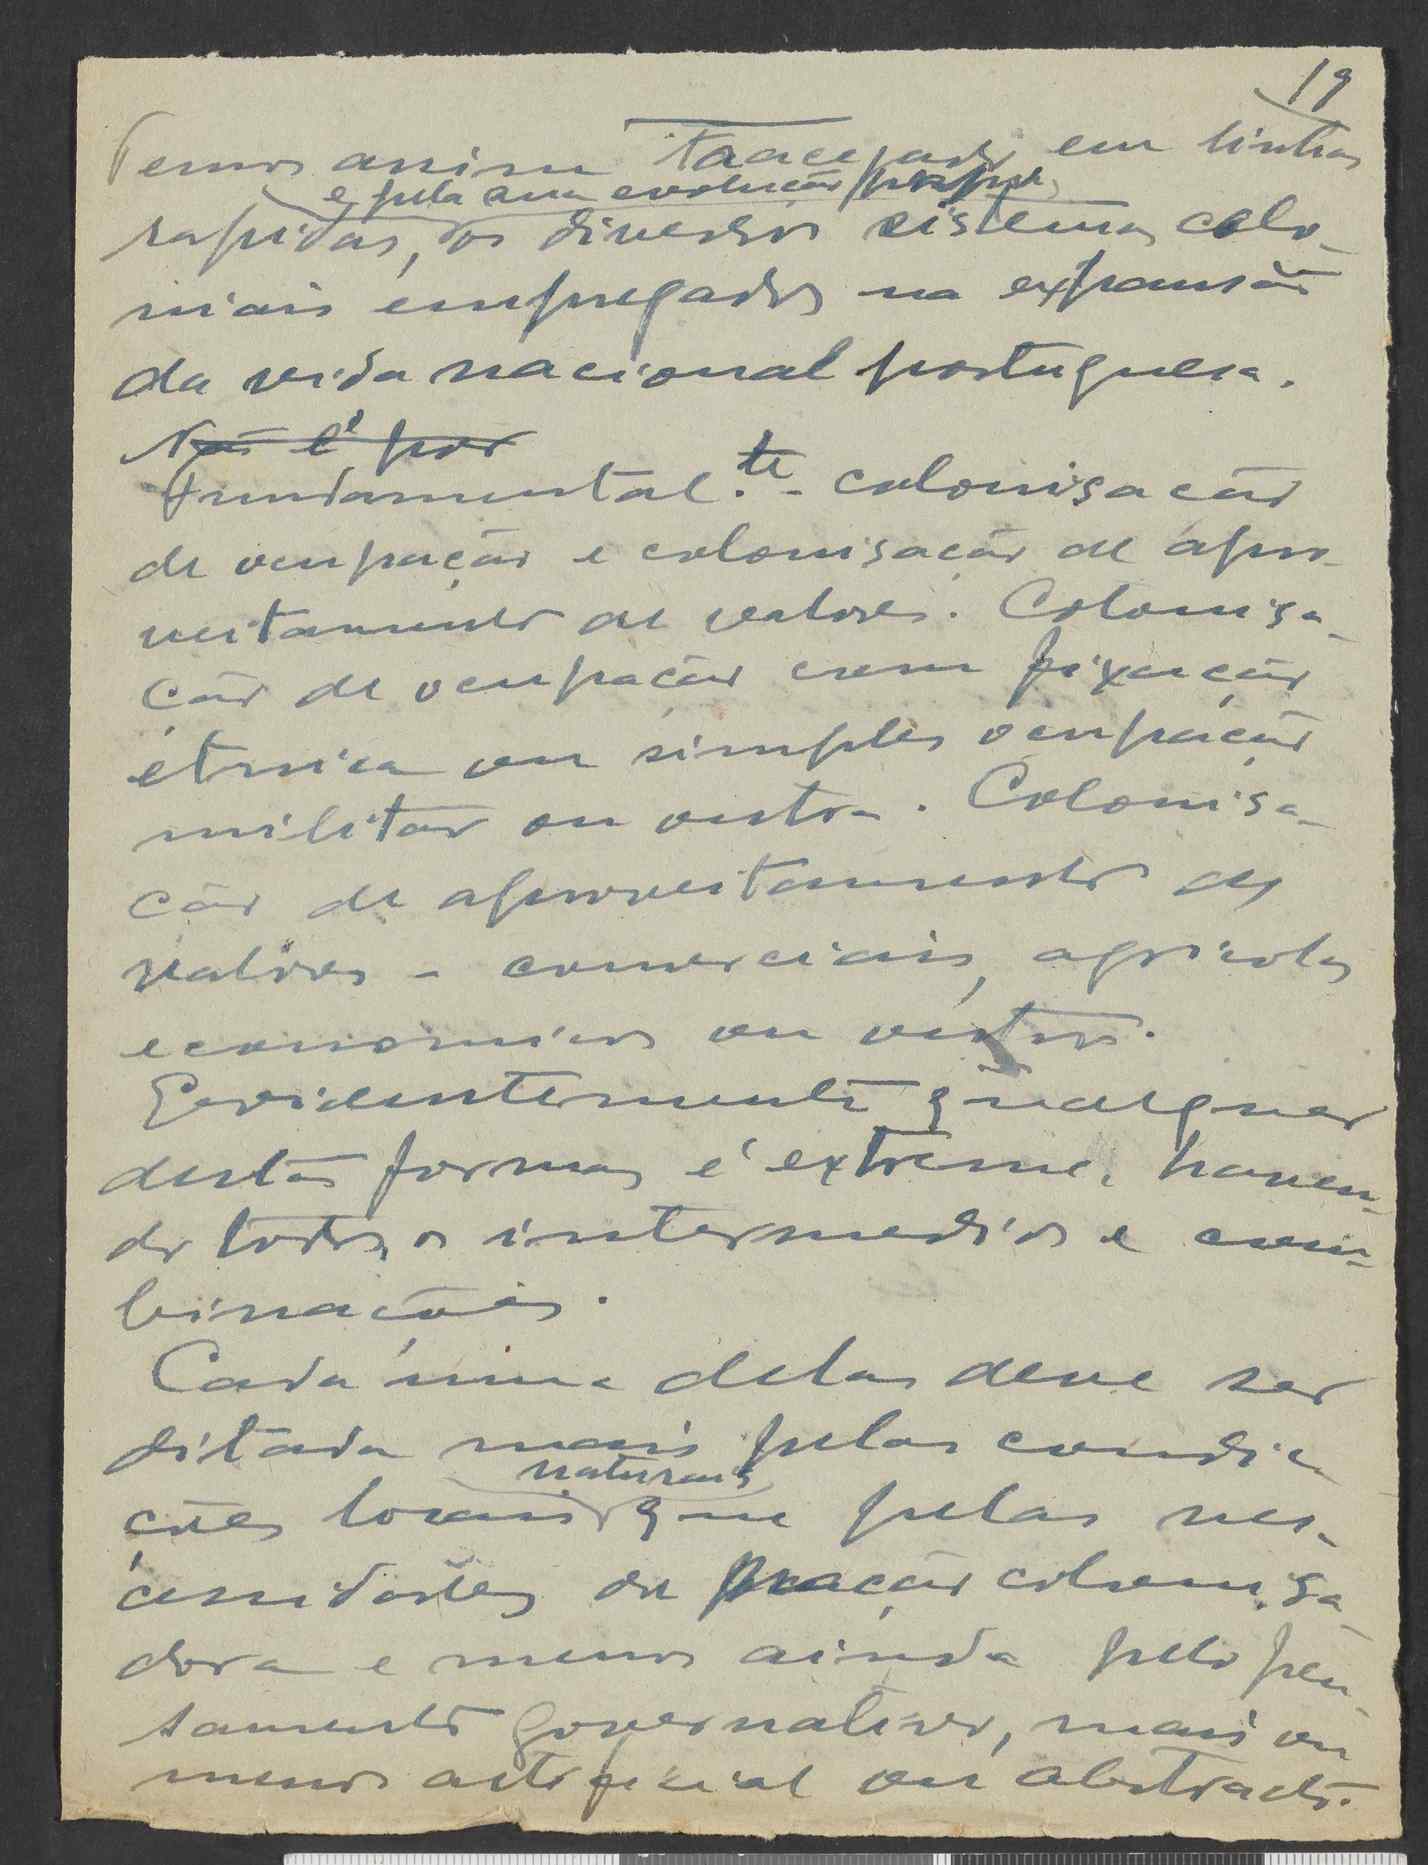 19
Temos assim traçado, em linhas
e pela sua evolução propria
rapidas, os diversos sistemas colo-
niais empregados na expansão
da vida nacional portuguesa.
Não é por
Fundamental.te - colonisação
de ocupação e colonisação de apro-
veitamento de valores. Colonisa-
ção de ocupação com fixação
étnica ou simples ocupação
militar ou outra. Colonisa-
ção de aproveitamento de
valores - comerciais, agricolas
economicos ou outros.
Evidentemente qualquer
destas formas é extreme, haven-
do todos os intermedios e com-
binações.
Cada uma delas deve ser
ditada mais pelas condi-
naturais
ções locais que pelas nes-
cessidades da nação colonisa-
dora e menos ainda pelo pen-
samento governativo, mais ou
menos artificial ou abstracto.